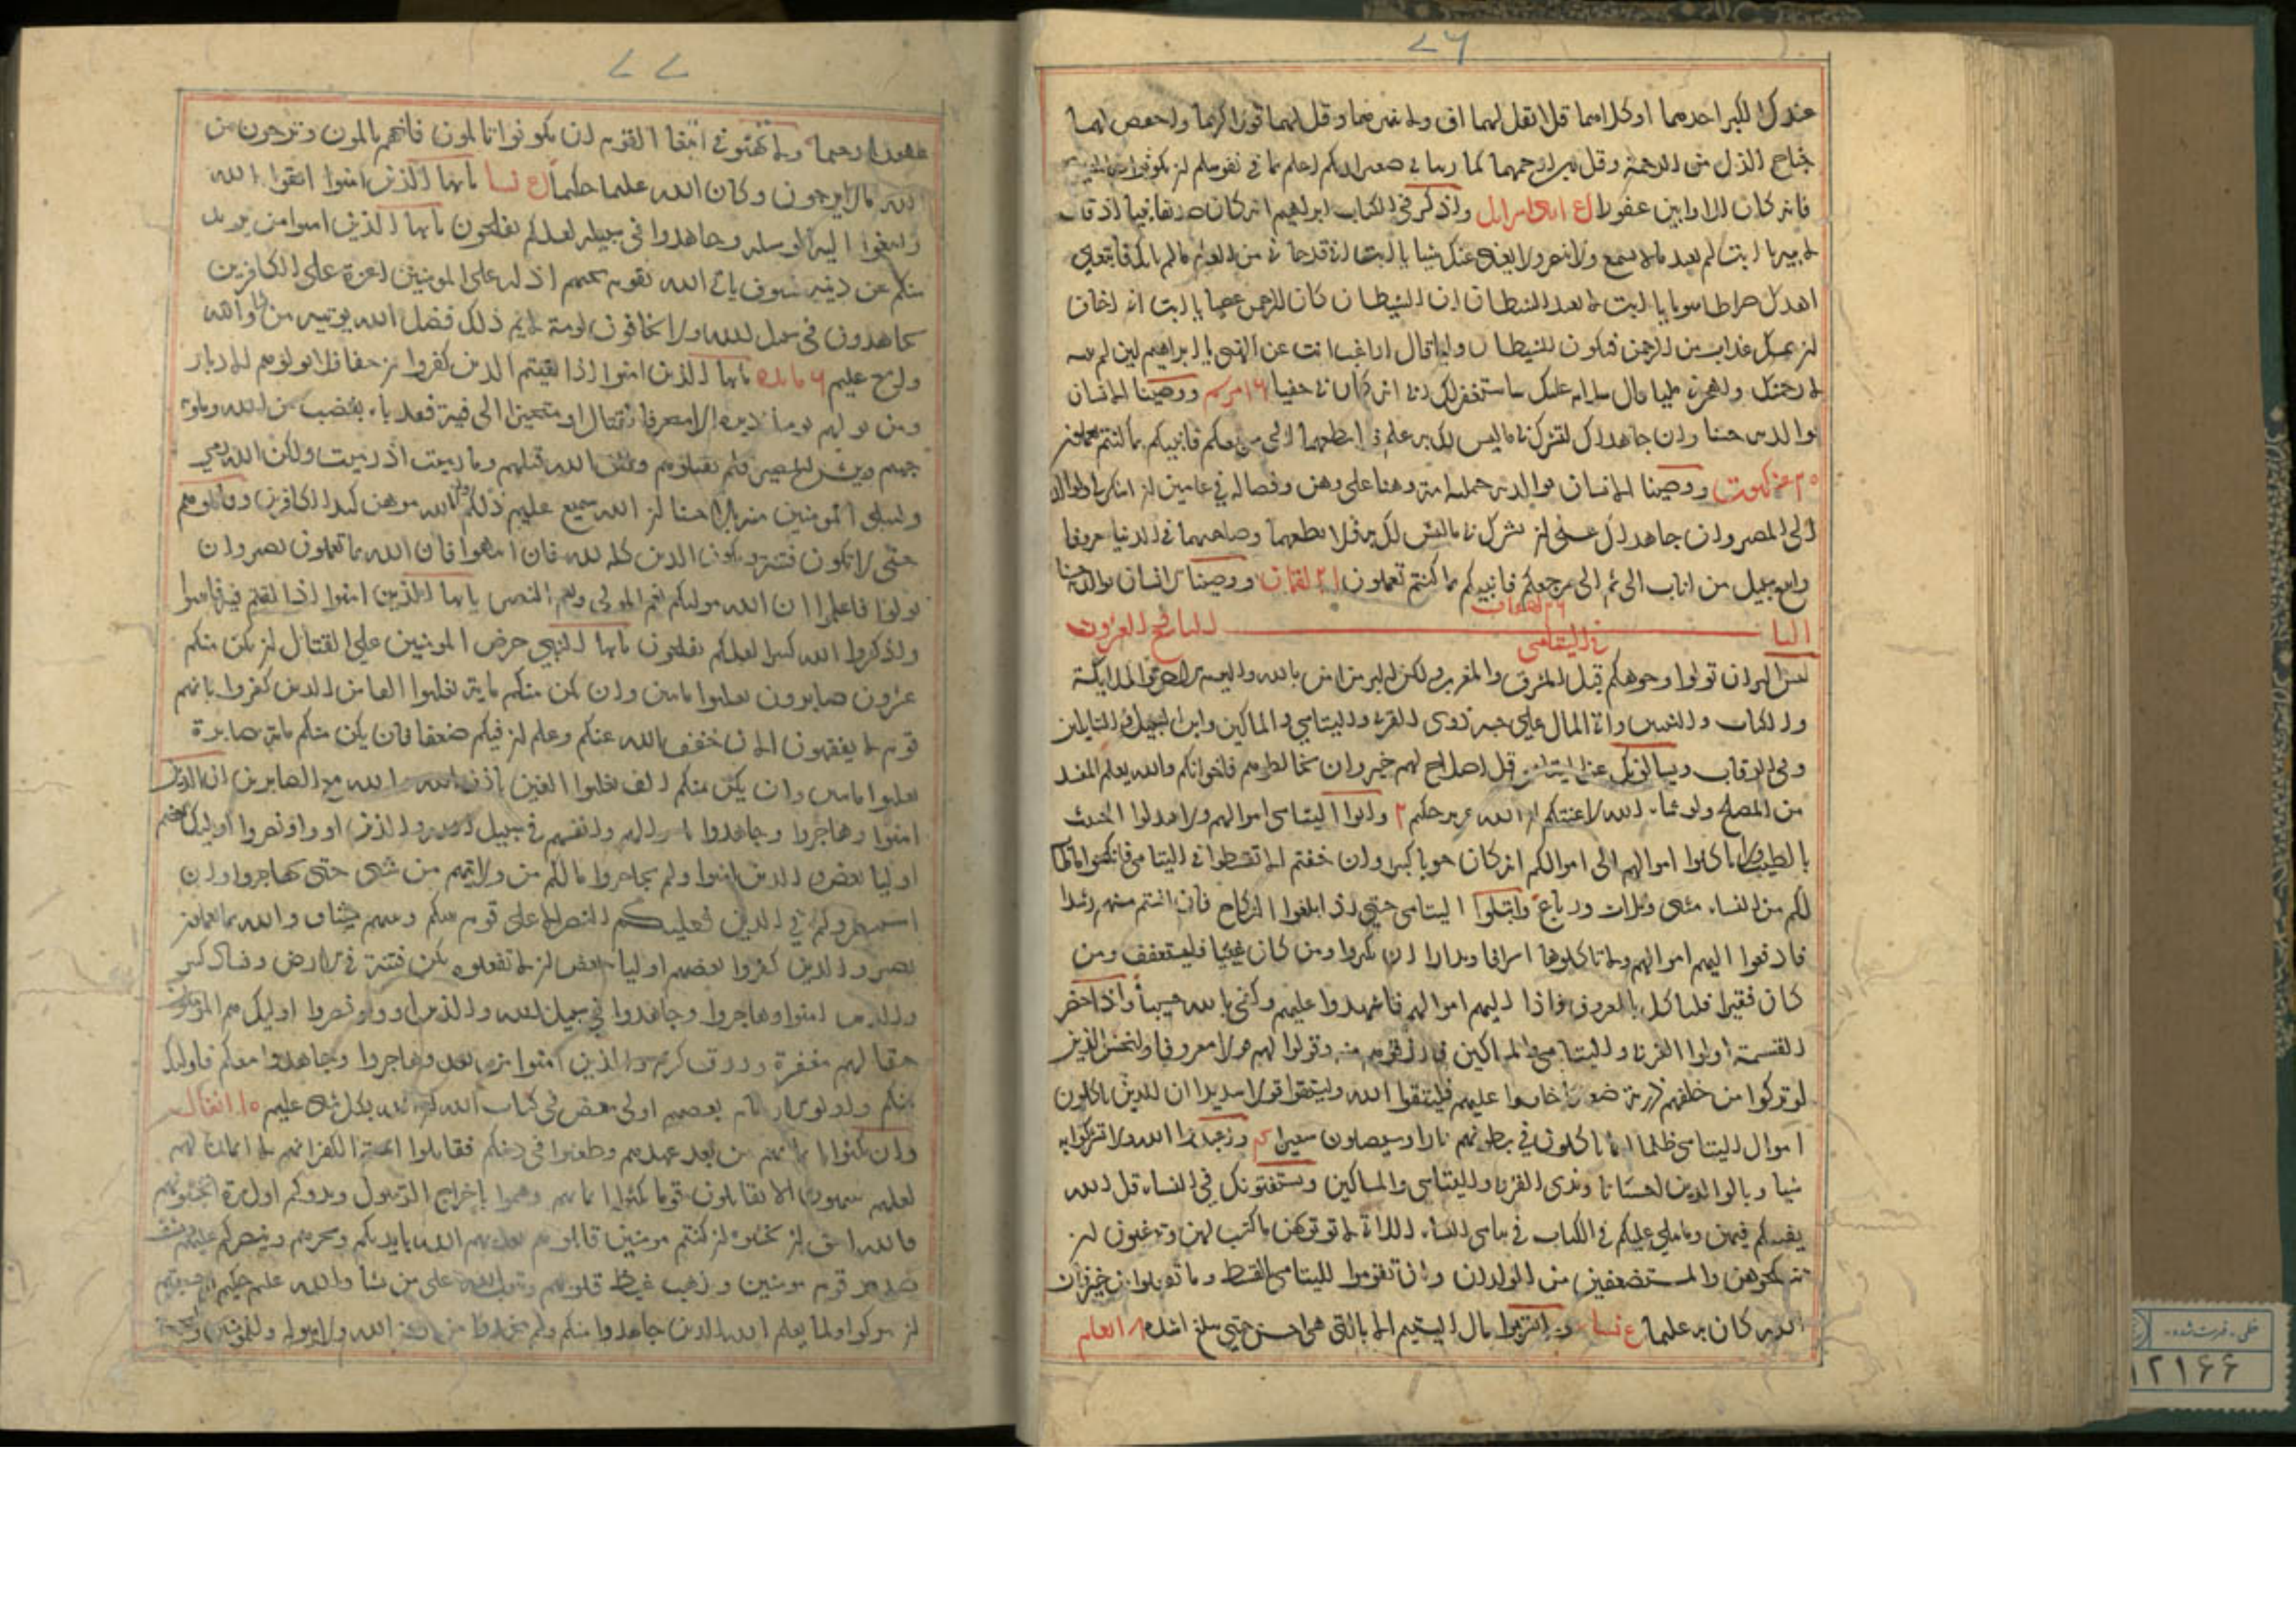 ۷۶
عندك الكبر احدهما او كلاهما فلا تقل لهما اف ولا تنهرهما وقل لهما قولا كريما واخفض لهما
جناح الذل من الرحمة وقل رب ارحمهما كما ربيانی صغيرا ربكم اعلم بما فی نفوسكم ان تكونوا صالحين
فانه كان للاوابين غفورا واذكر فی الكتاب ابراهيم انه كان صديقا نبيا اذ قال
لابيه يا ابت لم تعبد ما لا يسمع ولا يبصر ولا يغنی عنك شيئا يا ابت انی قد جاءنی من العلم ما لم ياتك فاتبعنی
اهدك صراطا سويا يا ابت لا تعبد الشيطان ان الشيطان كان للرحمن عصيا يا ابت انی اخاف
ان يمسك عذاب من الرحمن فتكون للشيطان وليا قال اراغب انت عن الهتی يا ابراهيم لئن لم تنته
لارجمنك واهجرنی مليا قال سلام عليك ساستغفر لك ربی انه كان بی حفيا ۱۶ مريم ووصينا الانسان
بوالديه حسنا وان جاهداك لتشرك بی ما ليس لك به علم فلا تطعهما الی مرجعكم فانبئكم بما كنتم تعملون
۲۰ عنكبوت ووصينا الانسان بوالديه حملته امه وهنا علی وهن وفصاله فی عامين ان اشكر لی ولوالديك
الی المصير وان جاهداك علی ان تشرك بی ما ليس لك به فلا تطعهما وصاحبهما فی الدنيا معروفا
واتبع سبيل من اناب الی ثم الی مرجعكم فانبيكم بما كنتم تعملون ۲۱ لقمان ووصينا الانسان بوالديه حسنا
۲۶ احقاف
البا فی اليتامی
ليس البر ان تولوا وجوهكم قبل المشرق والمغرب ولكن البر من امن بالله واليوم الاخر والملايكة
والكتاب والنبيين واتی المال علی حبه ذوی القربی واليتامی والمساكين وابن السبيل والسايلين
وفی الرقاب ويسالونك عن اليتامی قل اصلاح لهم خير وان تخالطوهم فاخوانكم والله يعلم المفسد
من المصلح ولو شاء الله لاعنتكم ان الله عزيز حكيم ۲ واتوا اليتامی اموالهم ولا تبدلوا الخبيث
بالطيب ولا تاكلوا اموالهم الی اموالكم انه كان حوبا كبيرا وان خفتم الا تقسطوا فی اليتامی فانكحوا ما طاب
لكم من النساء مثنی وثلاث ورباع وابتلوا اليتامی حتی اذا بلغوا النكاح فان انستم منهم رشدا
فادفعوا اليهم اموالهم ولا تاكلوها اسرافا وبدارا ان يكبروا ومن كان غنيا فليستعفف ومن
كان فقيرا فلياكل بالمعروف فاذا اليهم اموالهم فاشهدوا عليهم وكفی بالله حسيبا واذا حضر
القسمة اولوا القربی واليتامی والمساكين فارزقوهم منه وقولوا لهم قولا معروفا وليخش الذين
لو تركوا من خلفهم ذرية ضعافا خافوا عليهم فليتقوا الله وليقولوا قولا سديدا ان الذين ياكلون
اموال اليتامی ظلما انما ياكلون فی بطونهم نارا وسيصلون سعيرا واعبدوا الله ولا تشركوا به
شيا وبالوالدين احسانا وبذی القربی واليتامی والمساكين ويستفتونك فی النساء قل الله
يفتيكم فيهن وما يتلی عليكم فی الكتاب فی يتامی النساء اللاتی لا توتونهن ما كتب لهن وترغبون ان
تنكحوهن والمستضعفين من الولدان وان تقوموا لليتامی بالقسط وما تفعلوا من خير فان
الله كان به عليما ۴ نساء ولا تقربوا مال اليتيم الا بالتی هی احسن حتی يبلغ اشده ۸ انعام
۷۷
غفورا رحيما ولا تهنوا فی ابتغا القوم ان تكونوا تالمون فانهم يالمون وترجون من
الله ما لا يرجون وكان الله عليما حكيما ۴ نسا يا ايها الذين امنوا اتقوا الله
وابتغوا اليه الوسيلة وجاهدوا فی سبيله لعلكم تفلحون يا ايها الذين امنوا من يرتد
منكم عن دينه فسوف ياتی الله بقوم يحبهم اذلة علی المومنين اعزة علی الكافرين
يجاهدون فی سبيل الله ولا يخافون لومة لائم ذلك فضل الله يوتيه من يشا والله
واسع عليم ۶ مايده يا ايها الذين امنوا اذا لقيتم الذين كفروا زحفا فلا تولوهم الادبار
ومن يولهم يومئذ دبره الا متحرفا لقتال او متحيزا الی فئة فقد باء بغضب من الله وماويه
جهنم وبئس المصير فلم تقتلوهم ولكن الله قتلهم وما رميت اذ رميت ولكن الله رمی
وليبلی المومنين منه بلاء حسنا ان الله سميع عليم ذلكم وان الله موهن كيد الكافرين وقاتلوهم
حتی لا تكون فتنة ويكون الدين كله لله فان انتهوا فان الله بما تعملون بصير وان
تولوا فاعلموا ان الله موليكم نعم المولی ونعم النصير يا ايها الذين امنوا اذا لقيتم فئة فاثبتوا
واذكروا الله كثيرا لعلكم تفلحون يا ايها النبی حرض المومنين علی القتال ان يكن منكم
عشرون صابرون يغلبوا مايتين وان يكن منكم ماية يغلبوا الفا من الذين كفروا بانهم
قوم لا يفقهون الان خفف الله عنكم وعلم ان فيكم ضعفا فان يكن منكم ماية صابرة
يغلبوا مايتين وان يكن منكم الف يغلبوا الفين باذن الله والله مع الصابرين ان الذين
امنوا وهاجروا وجاهدوا باموالهم وانفسهم فی سبيل الله والذين اووا ونصروا اوليك بعضهم
اوليا بعض والذين امنوا ولم يهاجروا ما لكم من ولايتهم من شی حتی يهاجروا وان
استنصروكم فی الدين فعليكم النصر الا علی قوم بينكم وبينهم ميثاق والله بما تعملون
بصير والذين كفروا بعضهم اوليا بعض ان لا تفعلوه تكن فتنة فی الارض وفساد كبير
والذين امنوا وهاجروا وجاهدوا فی سبيل الله والذين اووا ونصروا اوليك هم المومنون
حقا لهم مغفرة ورزق كريم والذين امنوا من بعد وهاجروا وجاهدوا معكم فاوليك
منكم واولوا الارحام بعضهم اولی ببعض فی كتاب الله ان الله بكل شی عليم ۱۰ انفال
وان نكثوا ايمانهم من بعد عهدهم وطعنوا فی دينكم فقاتلوا ائمة الكفر انهم لا ايمان لهم
لعلهم ينتهون الا تقاتلون قوما نكثوا ايمانهم وهموا باخراج الرسول وبدوكم اول مرة اتخشونهم
فالله احق ان تخشوه ان كنتم مومنين قاتلوهم يعذبهم الله بايديكم ويخزهم وينصركم عليهم ويشف
صدور قوم مومنين ويذهب غيظ قلوبهم ويتوب الله علی من يشا والله عليم حكيم ام حسبتم
ان تتركوا ولما يعلم الله الذين جاهدوا منكم ولم يتخذوا من دون الله ولا رسوله ولا المومنين وليجة
۱۲۱۶۶